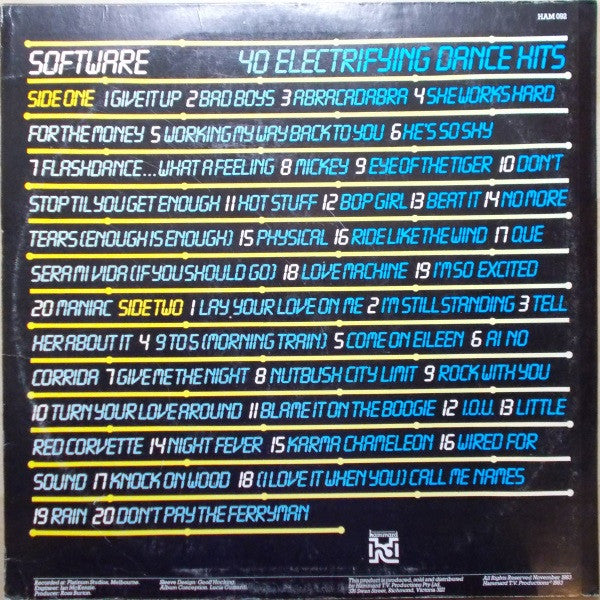 HAM 092
SOFTWARE 40 ELECTRIFYING DANCE HITS
SIDE ONE 1 GIVE IT UP 2 BAD BOYS 3 ABRACADABRA 4 SHE WORKS HARD
FOR THE MONEY 5 WORKING MY WAY BACK TO YOU 6 HE'S SO SHY
7 FLASHDANCE... WHAT A FEELING 8 MICKEY 9 EYE OF THE TIGER 10 DON'T
STOP TIL YOU GET ENOUGH 11 HOT STUFF 12 BOP GIRL 13 BEAT IT 14 NO MORE
TEARS (ENOUGH IS ENOUGH) 15 PHYSICAL 16 RIDE LIKE THE WIND 17 QUE
SERA MI VIDA (IF YOU SHOULD GO) 18 LOVE MACHINE 19 I'M SO EXCITED
20 MANIAC SIDE TWO 1 LAY YOUR LOVE ON ME 2 I'M STILL STANDING 3 TELL
HER ABOUT IT 4 9 TO 5 (MORNING TRAIN) 5 COME ON EILEEN 6 AI NO
CORRIDA 7 GIVE ME THE NIGHT 8 NUTBUSH CITY LIMIT 9 ROCK WITH YOU
10 TURN YOUR LOVE AROUND 11 BLAME IT ON THE BOOGIE 12 I.O.U. 13 LITTLE
RED CORVETTE 14 NIGHT FEVER 15 KARMA CHAMELEON 16 WIRED FOR
SOUND 17 KNOCK ON WOOD 18 (I LOVE IT WHEN YOU) CALL ME NAMES
19 RAIN 20 DON'T PAY THE FERRYMAN
hammard
Recorded at: Platinum Studios, Melbourne.
Engineer: Ian McKenzie.
Producer: Ross Burton.
Sleeve Design: Geoff Hocking.
Album Conception: Lucia
This product is produced, sold and distributed
by Hammard T.V. Productions Pty Ltd.
Swan Street, Richmond, Victoria 3121
All Rights Reserved November 1983
Hammard T.V. Productions 1983